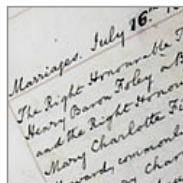 Marriages. July 16.th
The Right Honourable
Henry Baron Foley a B
and the Right Honou
Mary Charlotte Fi
Howard, commonl
Cha